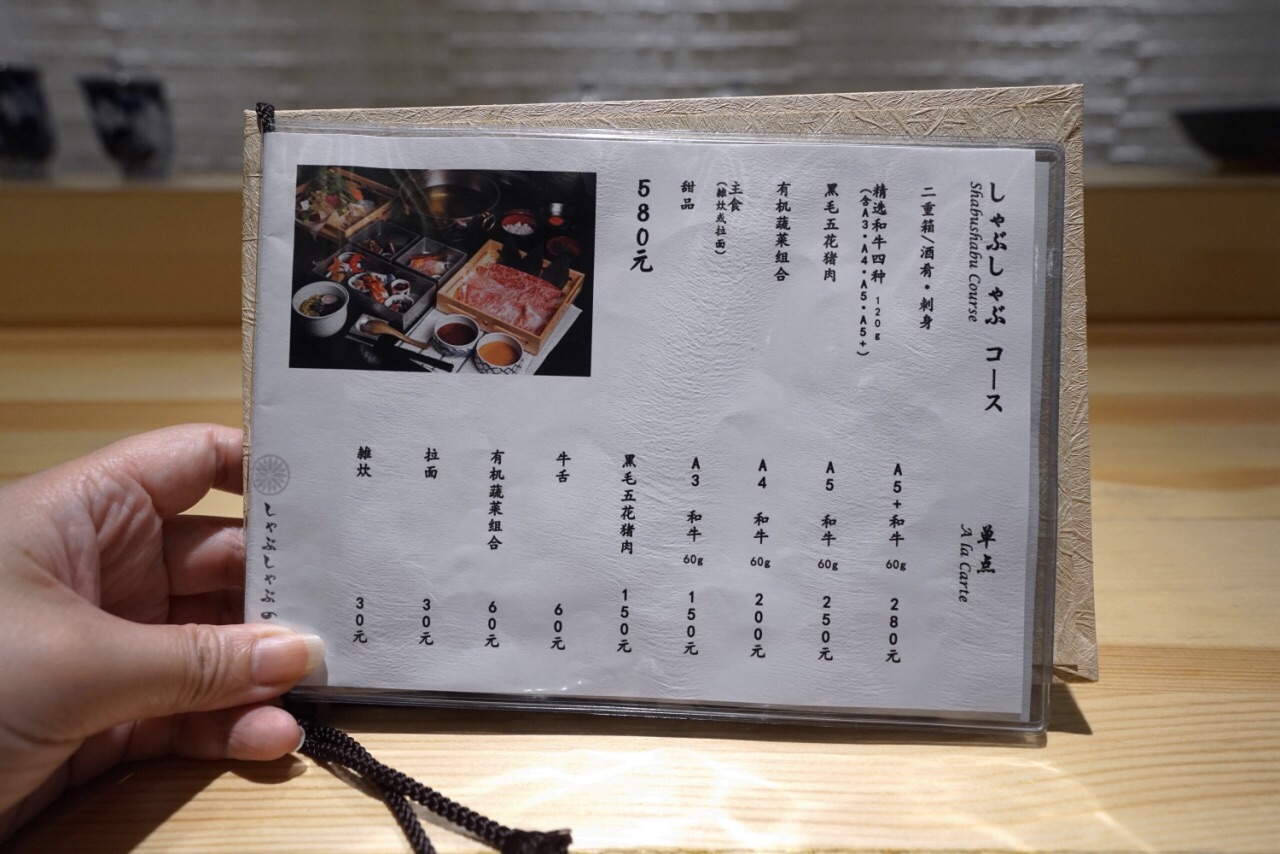 しゃぶしゃぶ コース
Shabushabu Course
二重箱/酒肴・刺身
精选和牛四种 120g
(含A3・A4・A5・A5+)
黑毛五花猪肉
有机蔬菜组合
主食
(雑炊或拉面)
甜品
580元
单点
A la Carte
A5+和牛 60g 280元
A5 和牛 60g 250元
A4 和牛 60g 200元
A3 和牛 60g 150元
黑毛五花猪肉 150元
牛舌 60元
有机蔬菜组合 60元
拉面 30元
雑炊 30元
しゃぶしゃぶ